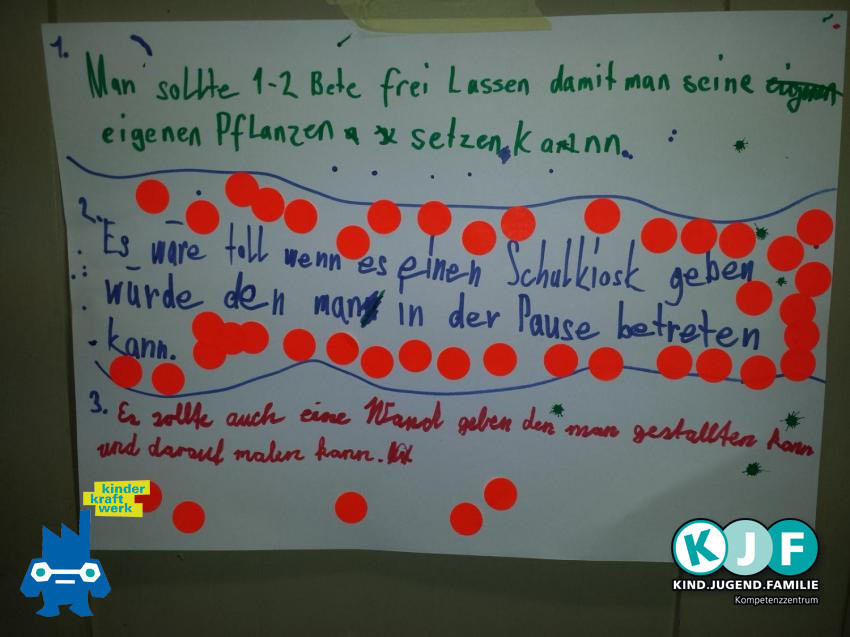 1.
Man sollte 1-2 Bete frei Lassen damit man seine eignen
eigenen Pflanzen setzen kann.
2.
Es wäre toll wenn es einen Schulkiosk geben
würde den man in der Pause betreten
kann.
3. Es sollte auch eine Wand geben den man gestallten kann
und darauf malen kann.
kinder
kraft
werk
KJF
KIND.JUGEND.FAMILIE
Kompetenzzentrum